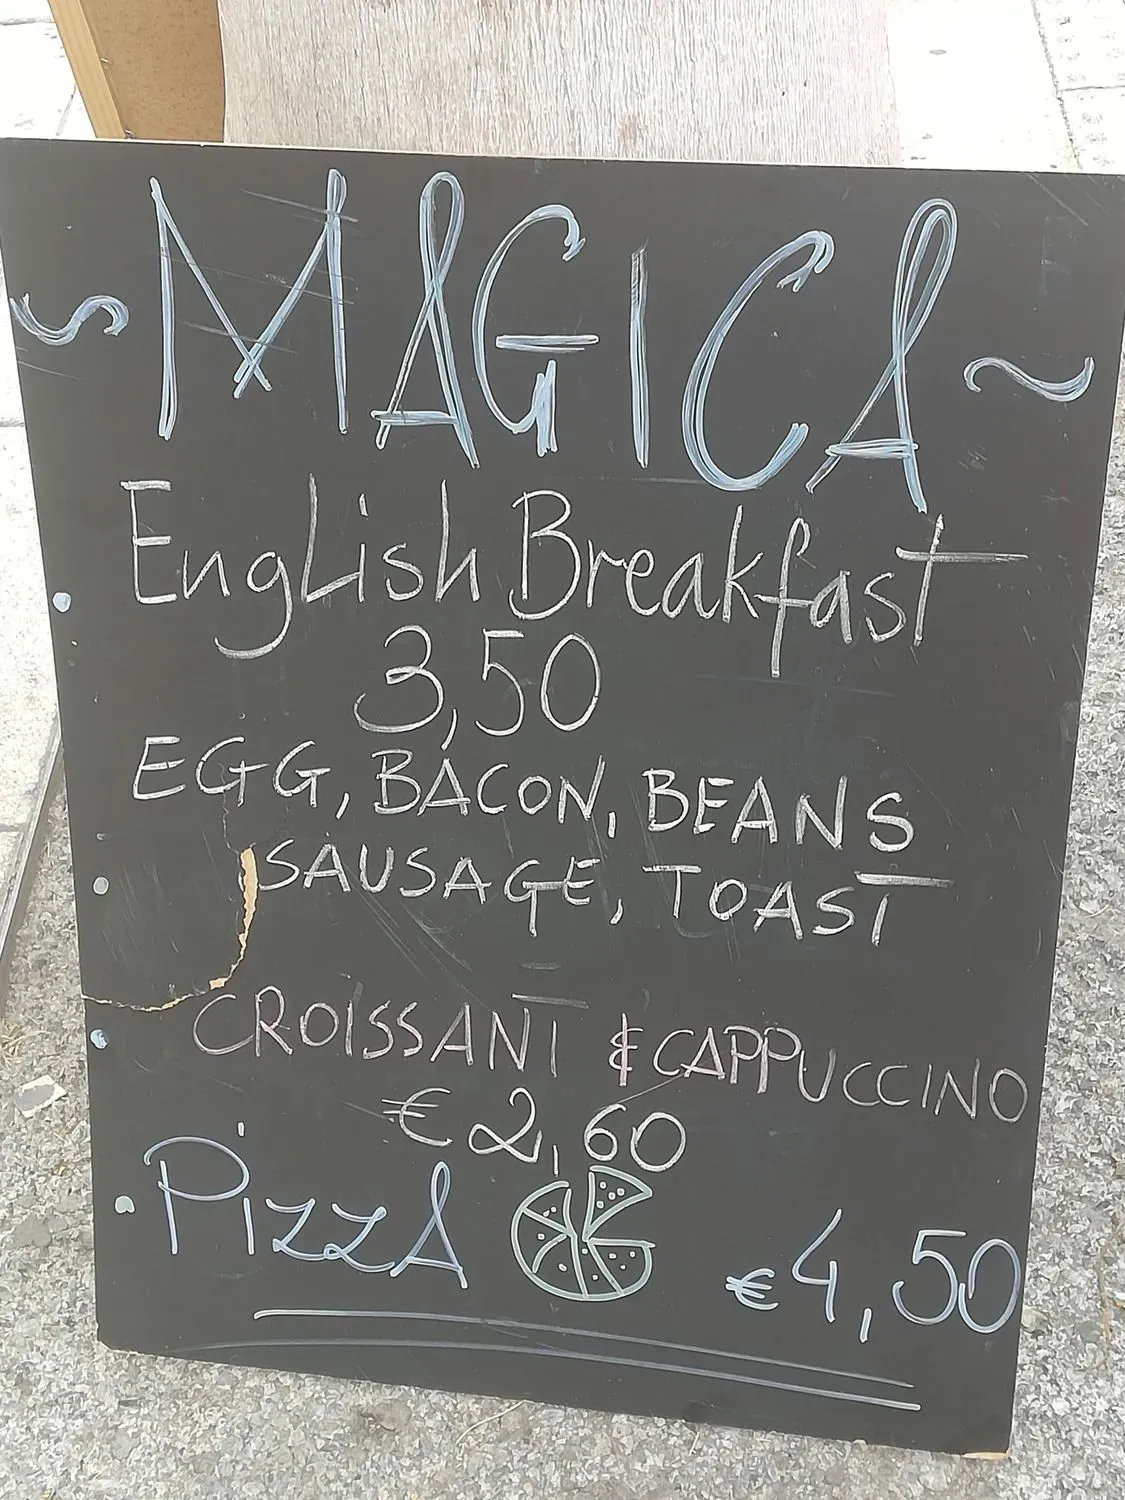 ~ MAGICA ~
English Breakfast
3,50
EGG, BACON, BEANS
SAUSAGE, TOAST
CROISSANT & CAPPUCCINO
€ 2,60
PizzA € 4,50